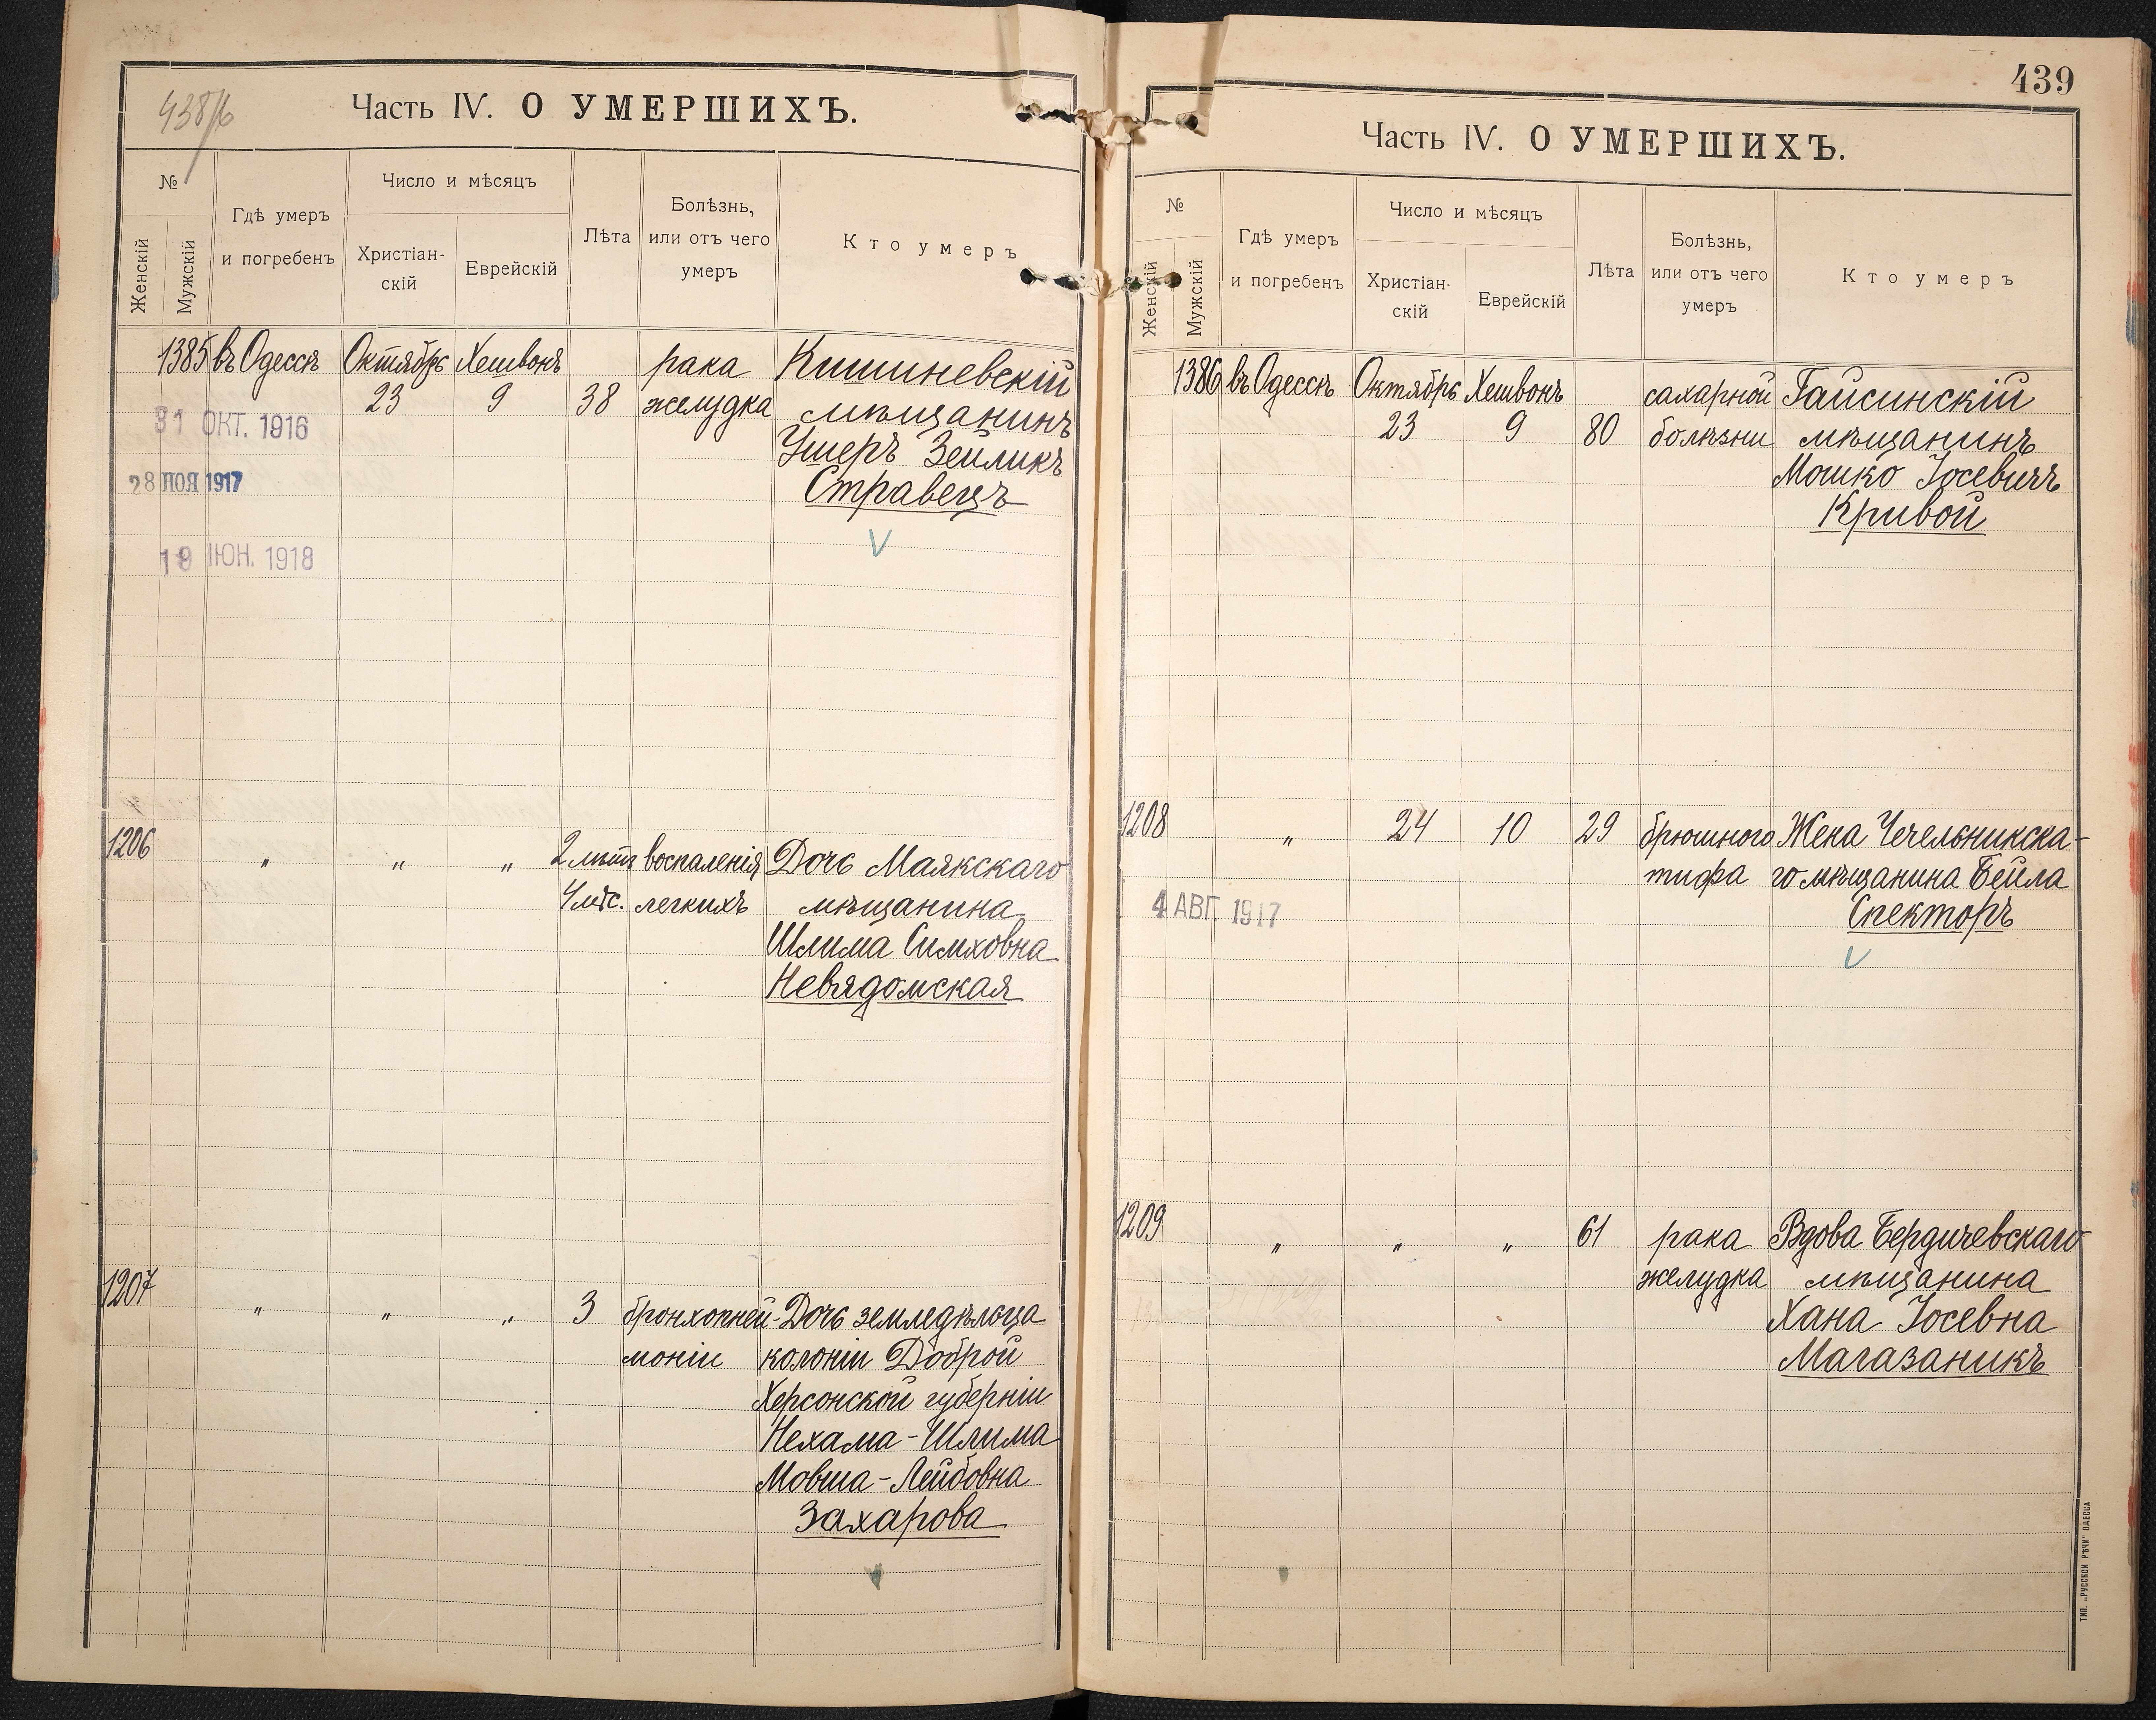 438/б
Часть IV. О УМЕРШИХЪ.
№
Женскій
Мужскій
Гдѣ умеръ
и погребенъ
Число и мѣсяцъ
Христіан-
скій
Еврейскій
Лѣта
Болѣзнь,
или отъ чего
умеръ
Кто умеръ
1385 въ Одессѣ Октябрь Хешвонъ рака Кишиневскій
23 9 38 желудка мѣщанинъ
Ушеръ Зейликъ
Стравецъ
31 ОКТ. 1916
28 НОЯ 1917
19 ІЮН. 1918
1206 " " " 2 лѣтъ воспаленія Дочь Маякскаго
4 мѣс. легкихъ мѣщанина
Шлима Симховна
Невядомская
1207 " " " 3 бронхопней- Дочь земледѣльца
моніи колоніи Доброй
Херсонской губерніи
Нехама-Шлима
Мовша-Лейбовна
Захарова
439
Часть IV. О УМЕРШИХЪ.
№
Женскій
Мужскій
Гдѣ умеръ
и погребенъ
Число и мѣсяцъ
Христіан-
скій
Еврейскій
Лѣта
Болѣзнь,
или отъ чего
умеръ
Кто умеръ
1386 въ Одессѣ Октябрь Хешвонъ сахарной Гайсинскій
23 9 80 болѣзни мѣщанинъ
Мошко Іосевичъ
Кривой
1208 " 24 10 29 брюшного Жена Чечельникска-
тифа го мѣщанина Бейла
Спекторъ
4 АВГ. 1917
1209 " " " 61 рака Вдова Бердичевскаго
желудка мѣщанина
Хана Іосевна
Магазаникъ
ТИП. „РУССКОЙ РѢЧИ" ОДЕССА